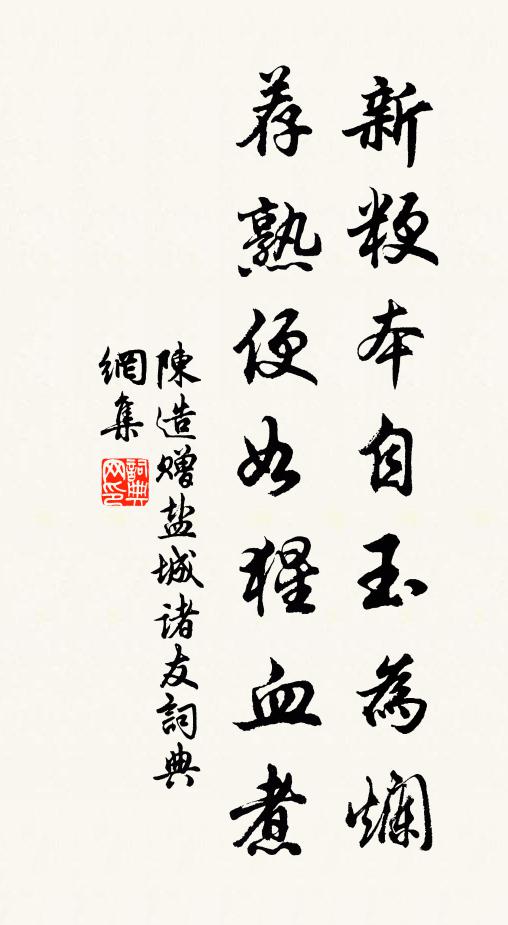 新粳本自玉為爛
荐熟便如猩血煮
陳造赠盐城诸友詞典
網集
詞典
网印